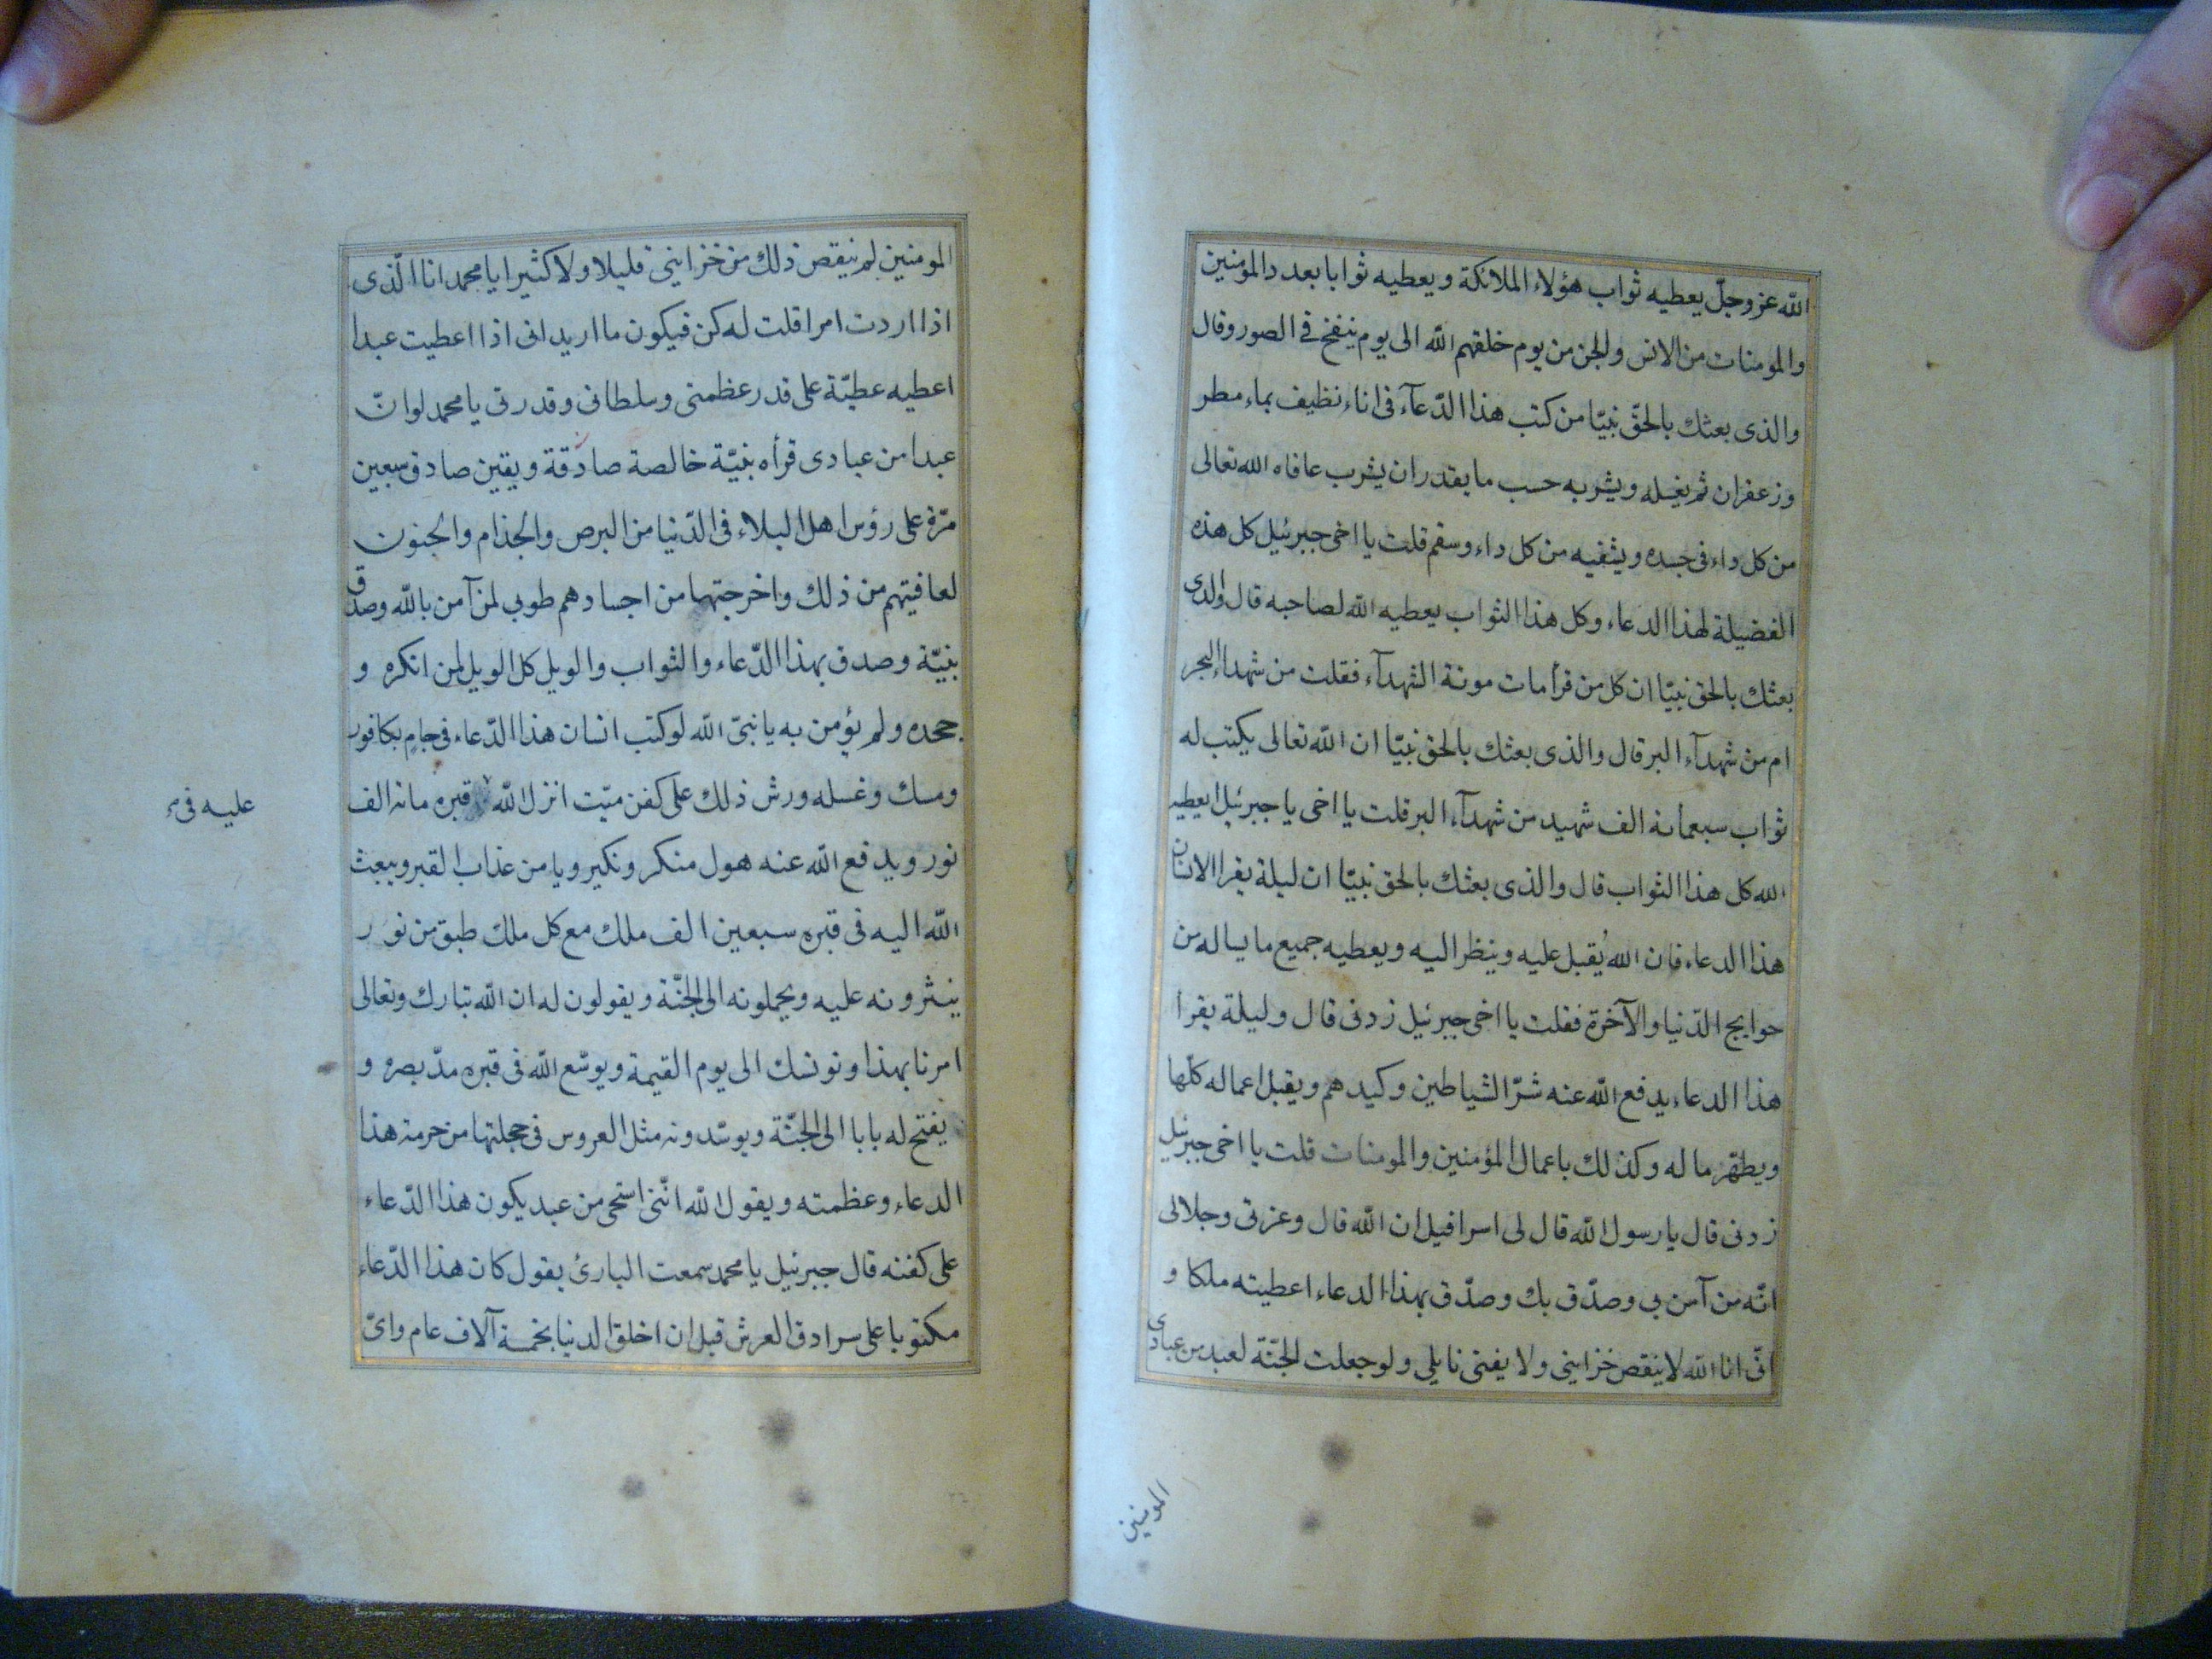 الله عز وجلّ يعطيه ثواب هؤلاء الملائكة و يعطيه ثوابا بعدد المؤمنين
والمومنات من الانس والجن من يوم خلقهم الله الى يوم ينفخ فى الصور وقال
والذى بعثك بالحقّ نبيّا من كتب هذا الدّعآء فى اناء نظيف بماء مطر
وزعفران ثم يغسله ويشربه حسب ما يقدر ان يشرب عافاه الله تعالى
من كل داء فى جسده ويشفيه من كل داء وسقم قلت يا اخى جبرئيل كل هذه
الفضيلة لهذا الدعاء وكل هذا الثواب يعطيه الله لصاحبه قال والذى
بعثك بالحق نبيّا ان كل من قرأ مات موتة الشهدآء فقلت من شهداء البحر
ام من شهدآء البر قال والذى بعثك بالحق نبيّا ان الله تعالى يكتب له
ثواب سبعمأنه الف شهيد من شهدآء البر قلت يا اخى يا جبرئيل ايعطيه
الله كل هذا الثواب قال والذى بعثك بالحق نبيّا ان ليلة يقرا الانسان
هذا الدعاء فان الله يُقبل عليه وينظر اليه ويعطيه جميع ما يساله من
حوايج الدّنيا والآخرة فقلت يا اخى جبرئيل زدنى قال وليلة يقرا
هذا الدعاء يدفع الله عنه شرّ الشياطين وكيدهم ويقبل اعماله كلّها
ويطهّر ماله وكذلك باعمال المؤمنين والمومنات قلت يا اخى جبرئيل
زدنى قال يا رسول الله قال لى اسرافيل ان الله قال وعزتى وجلالى
انّه من آمن بى وصدّق بك وصدّق بهذا الدعاء اعطيته ملكا و
انّى انا الله لا ينقص خزاينى ولا يفنى نايلى ولو جعلت الجنّة لعبد من عبادى
المومنين
المومنين لم ينقص ذلك من خزاينى قليلا ولا كثيرا يا محمد انا الّذى
اذا اردت امرا قلت له كن فيكون ما اريد انى اذا اعطيت عبدا
اعطيه عطيّة على قدر عظمتى وسلطانى وقدرتى يا محمد لو انّ
عبدا من عبادى قرأه بنيّة خالصة صادقة ويقين صادق سبعين
مرّة على رؤس اهل البلاء فى الدّنيا من البرص والجذام والجنون
لعافيتهم من ذلك واخرجتهما من اجسادهم طوبى لمن آمن بالله وصدق
بنيّة وصدق بهذا الدّعاء والثواب والويل كل الويل لمن انكره و
جحده ولم يؤمن به يا نبىّ الله لو كتب انسان هذا الدّعاء فى جام بكافور
ومسك وغسله ورش ذلك على كفن ميّت انزل الله قبره مانه الف
عليه فى
نور ويدفع الله عنه هول منكر ونكير ويامن عذاب القبر ويبعث
الله اليه فى قبره سبعين الف ملك مع كل ملك طبق من نور
ينثرونه عليه ويحملونه الى الجنّة ويقولون له ان الله تبارك وتعالى
امرنا بهذا ونونسك الى يوم القيمة ويوسّع الله فى قبره مدّ بصره و
يفتح له بابا الى الجنّة ويوسّدونه مثل العروس فى حجلتها من حرمة هذا
الدعاء وعظمته ويقول الله انّنى استحى من عبد يكون هذا الدّعاء
على كفنه قال جبرئيل يا محمد سمعت البارئ يقول كان هذا الدّعاء
مكتوبا على سرادق العرش قبل ان اخلق الدنيا بخمسة آلاف عام واىّ